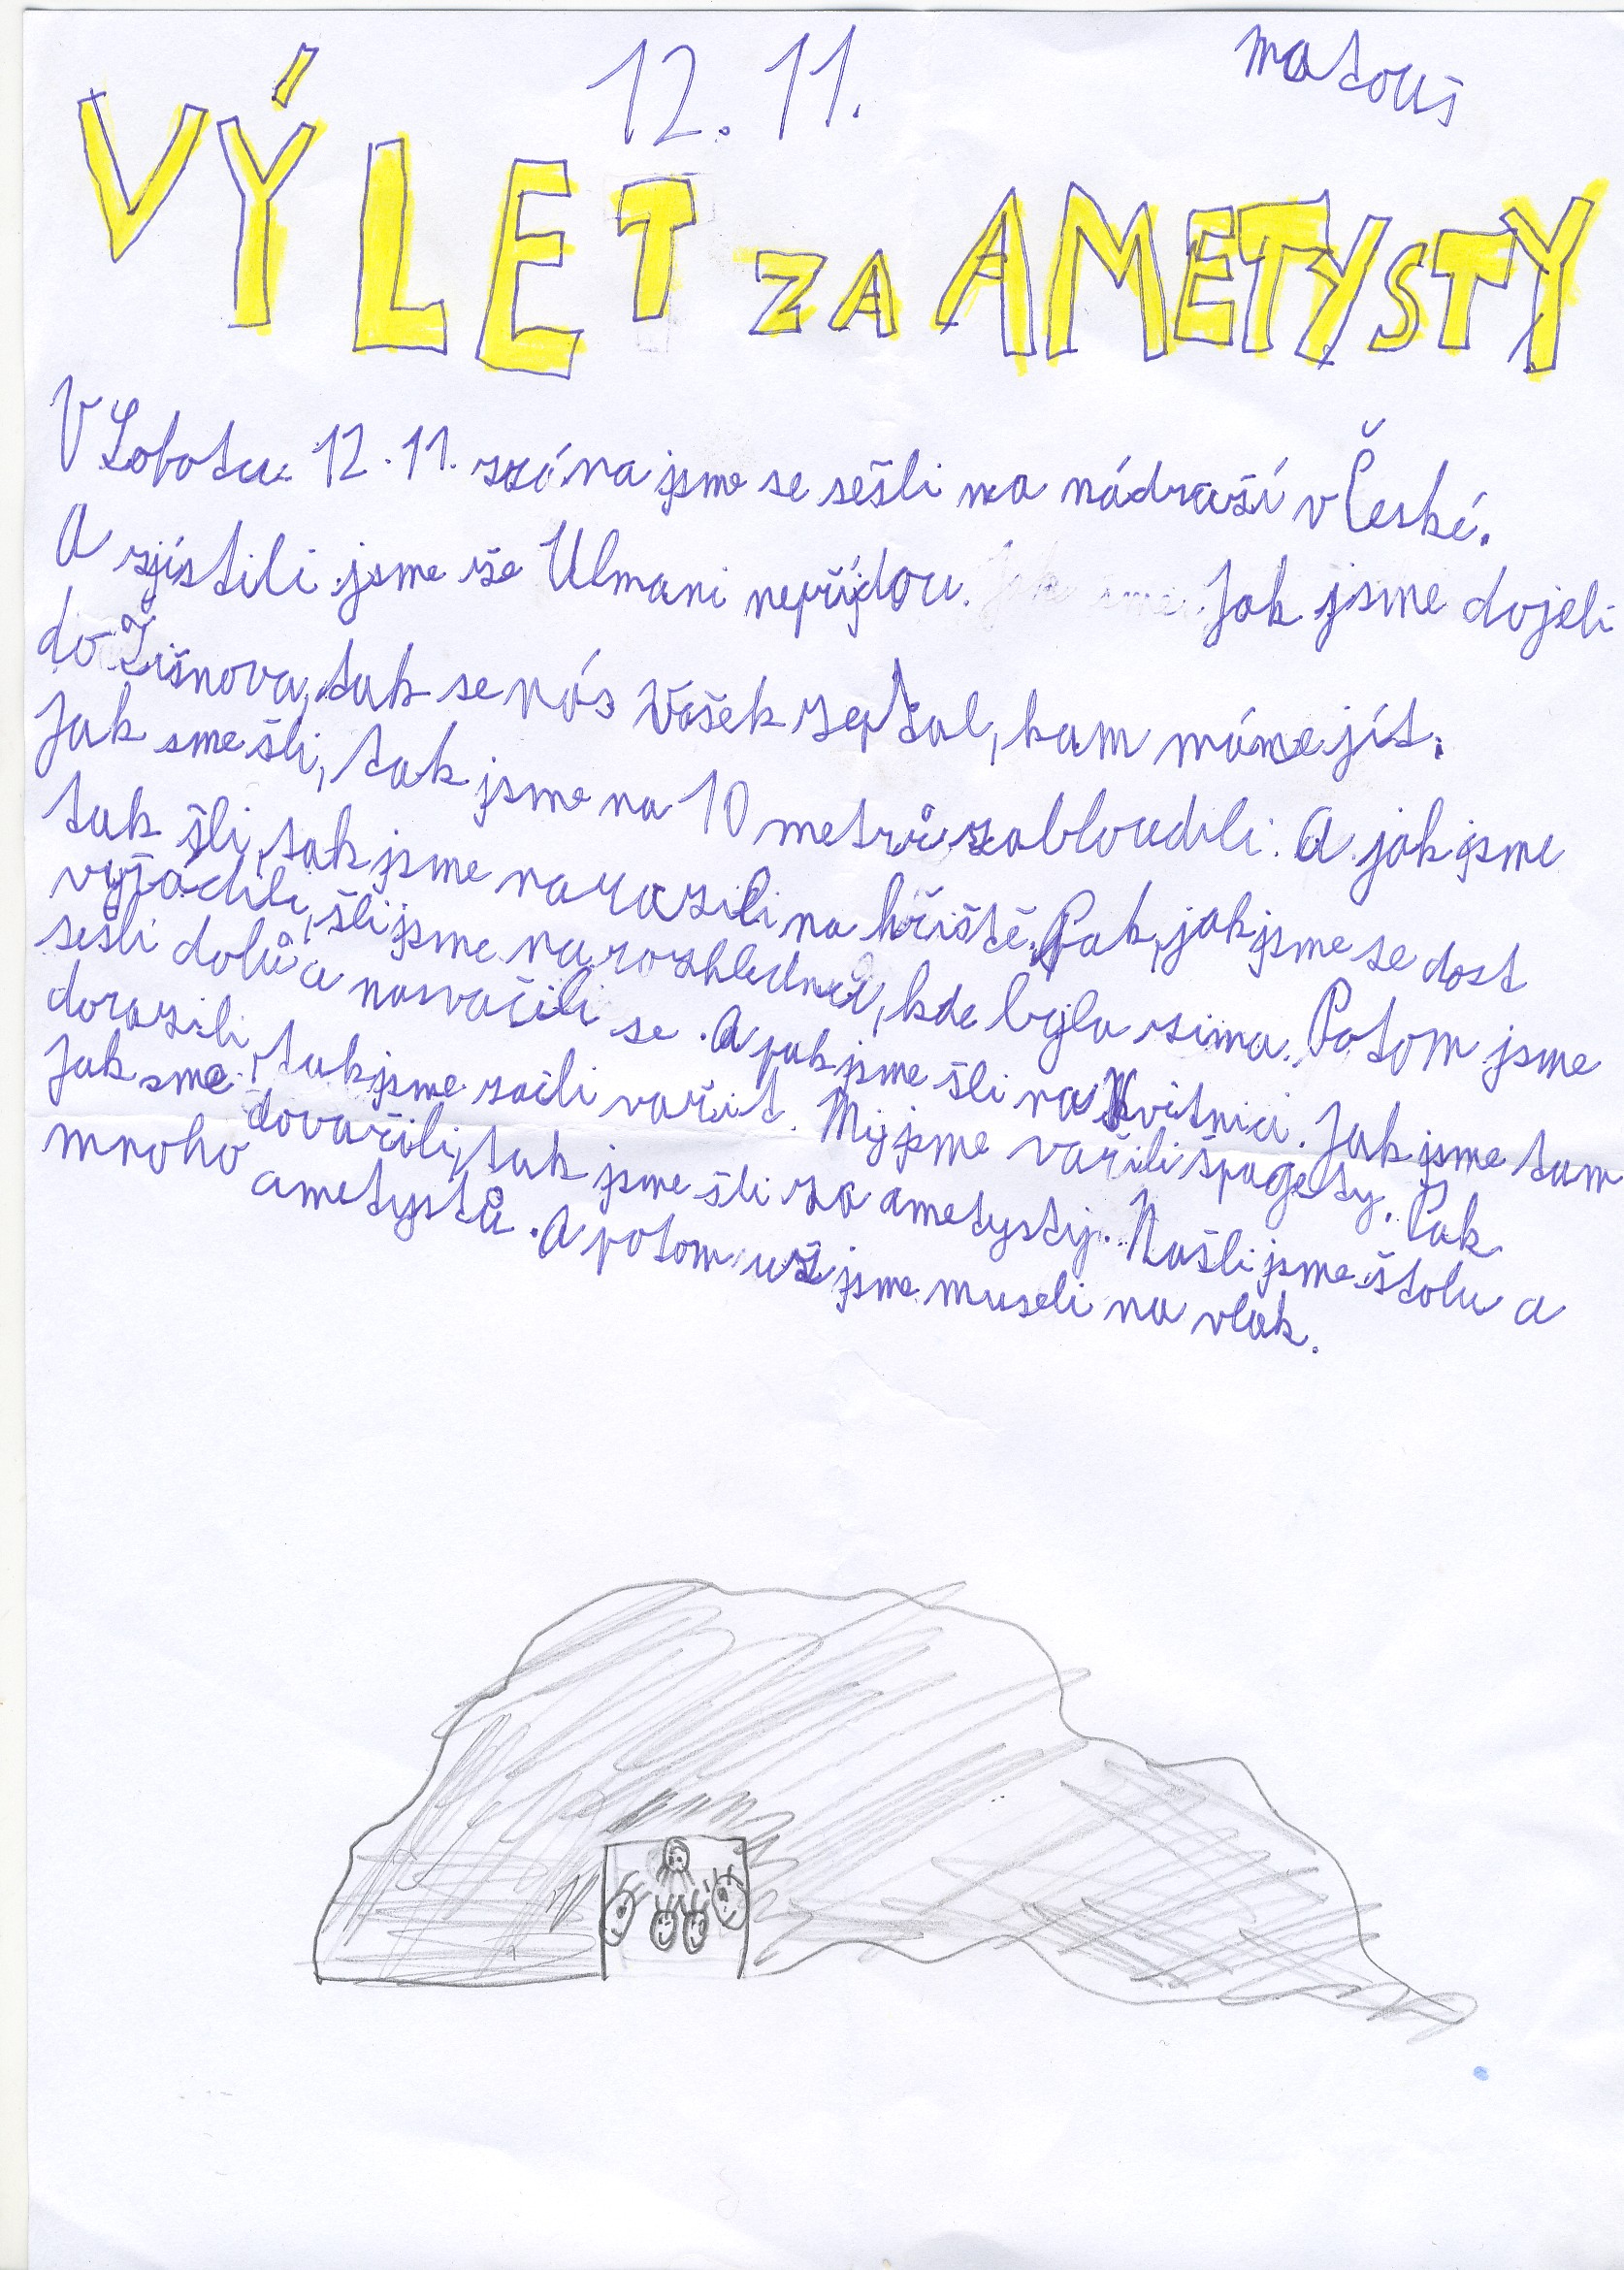 12. 11.
matouš
VÝLET ZA AMETYSTY
V Sobotu 12.11. zrána jsme se sešli na nádraží v České.
A zjistili jsme že Ulmani nepřijdou. Jak jsme dojeli
do Tišnova, tak se nás Vašek zeptal, kam máme jít.
Jak sme šli, tak jsme na 10 metrů zabloudili. A jak jsme
tak šli, tak jsme narazili na hřiště. Pak, jak jsme se dost
vyřádili, šli jsme na rozhlednu, kde byla zima. Potom jsme
sešli dolů a nasvačili se. A pak jsme šli na Květnici. Jak jsme tam
dorazili, tak jsme začli vařit. My jsme vařili špagety. Pak
Jak sme dovařili, tak jsme šli za ametysty. Našli jsme štolu a
mnoho ametystů. A potom už jsme museli na vlak.